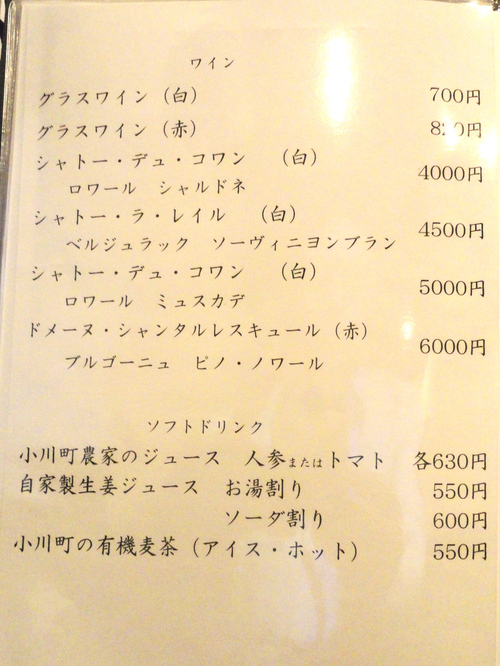 ワイン
グラスワイン（白） 700円
グラスワイン（赤）
シャトー・デュ・コワン （白） 4000円
ロワール シャルドネ
シャトー・ラ・レイル （白） 4500円
ベルジュラック ソーヴィニヨンブラン
シャトー・デュ・コワン （白） 5000円
ロワール ミュスカデ
ドメーヌ・シャンタルレスキュール（赤） 6000円
ブルゴーニュ ピノ・ノワール
ソフトドリンク
小川町農家のジュース 人参またはトマト 各630円
自家製生姜ジュース お湯割り 550円
ソーダ割り 600円
小川町の有機麦茶（アイス・ホット） 550円